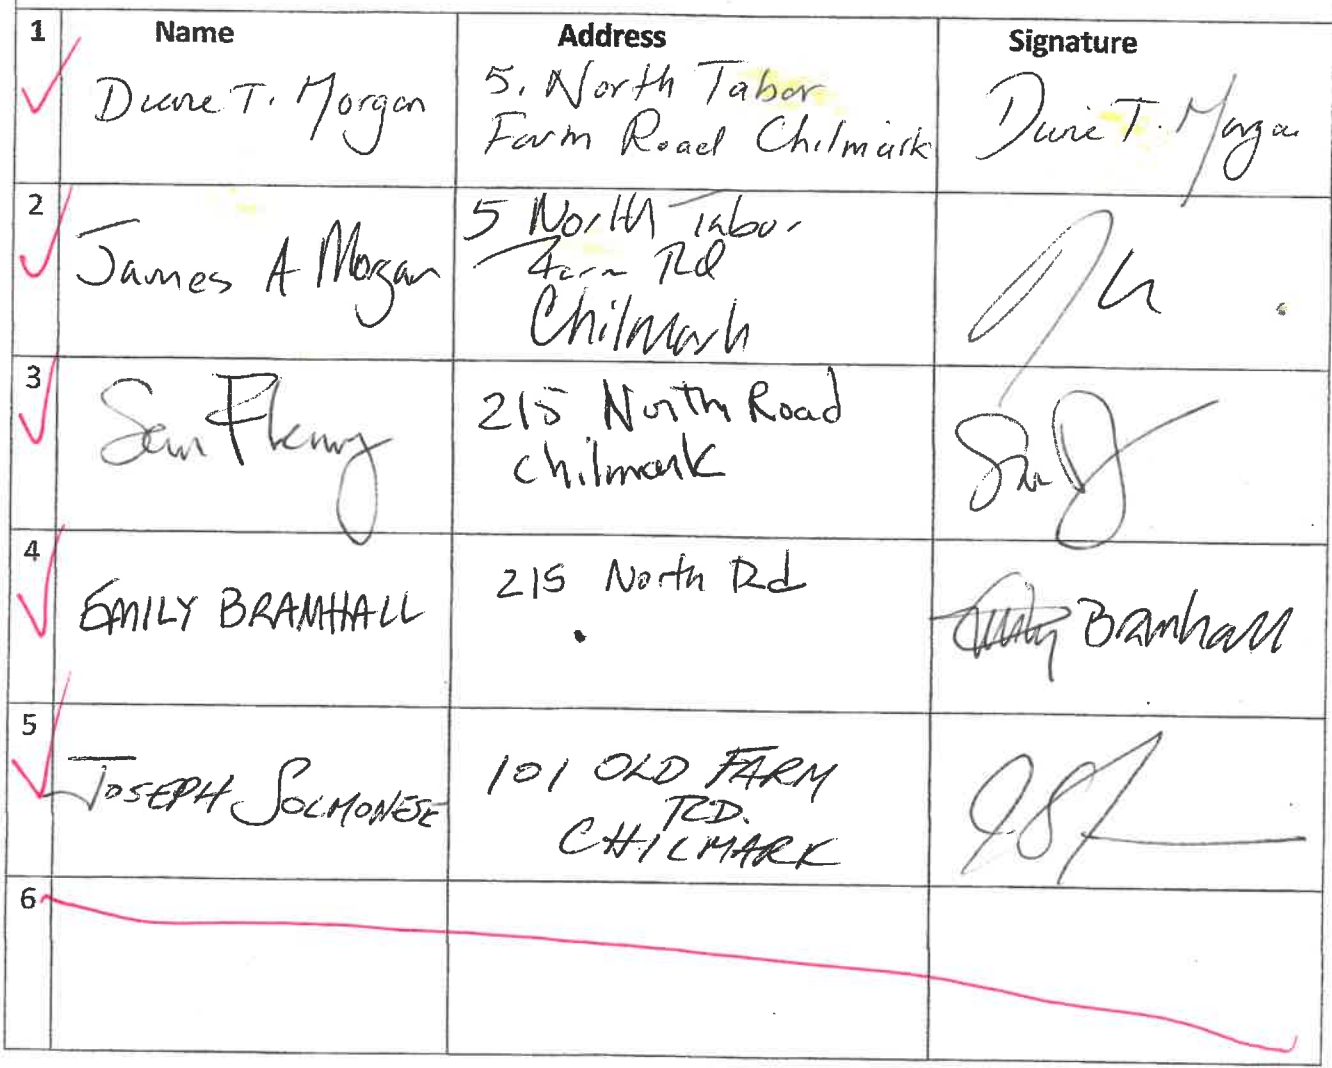 1 Name Address Signature
T. Morgan 5. North Tabor T. Morgan
Farm Road Chilmark
2 James A Morgan 5 North Tabor
Farm Rd
Chilmark
3 215 North Road
Chilmark
4 EMILY BRAMHALL 215 North Rd Emily Bramhall
5 JOSEPH SOLMONESE 101 OLD FARM
RD.
CHILMARK
6